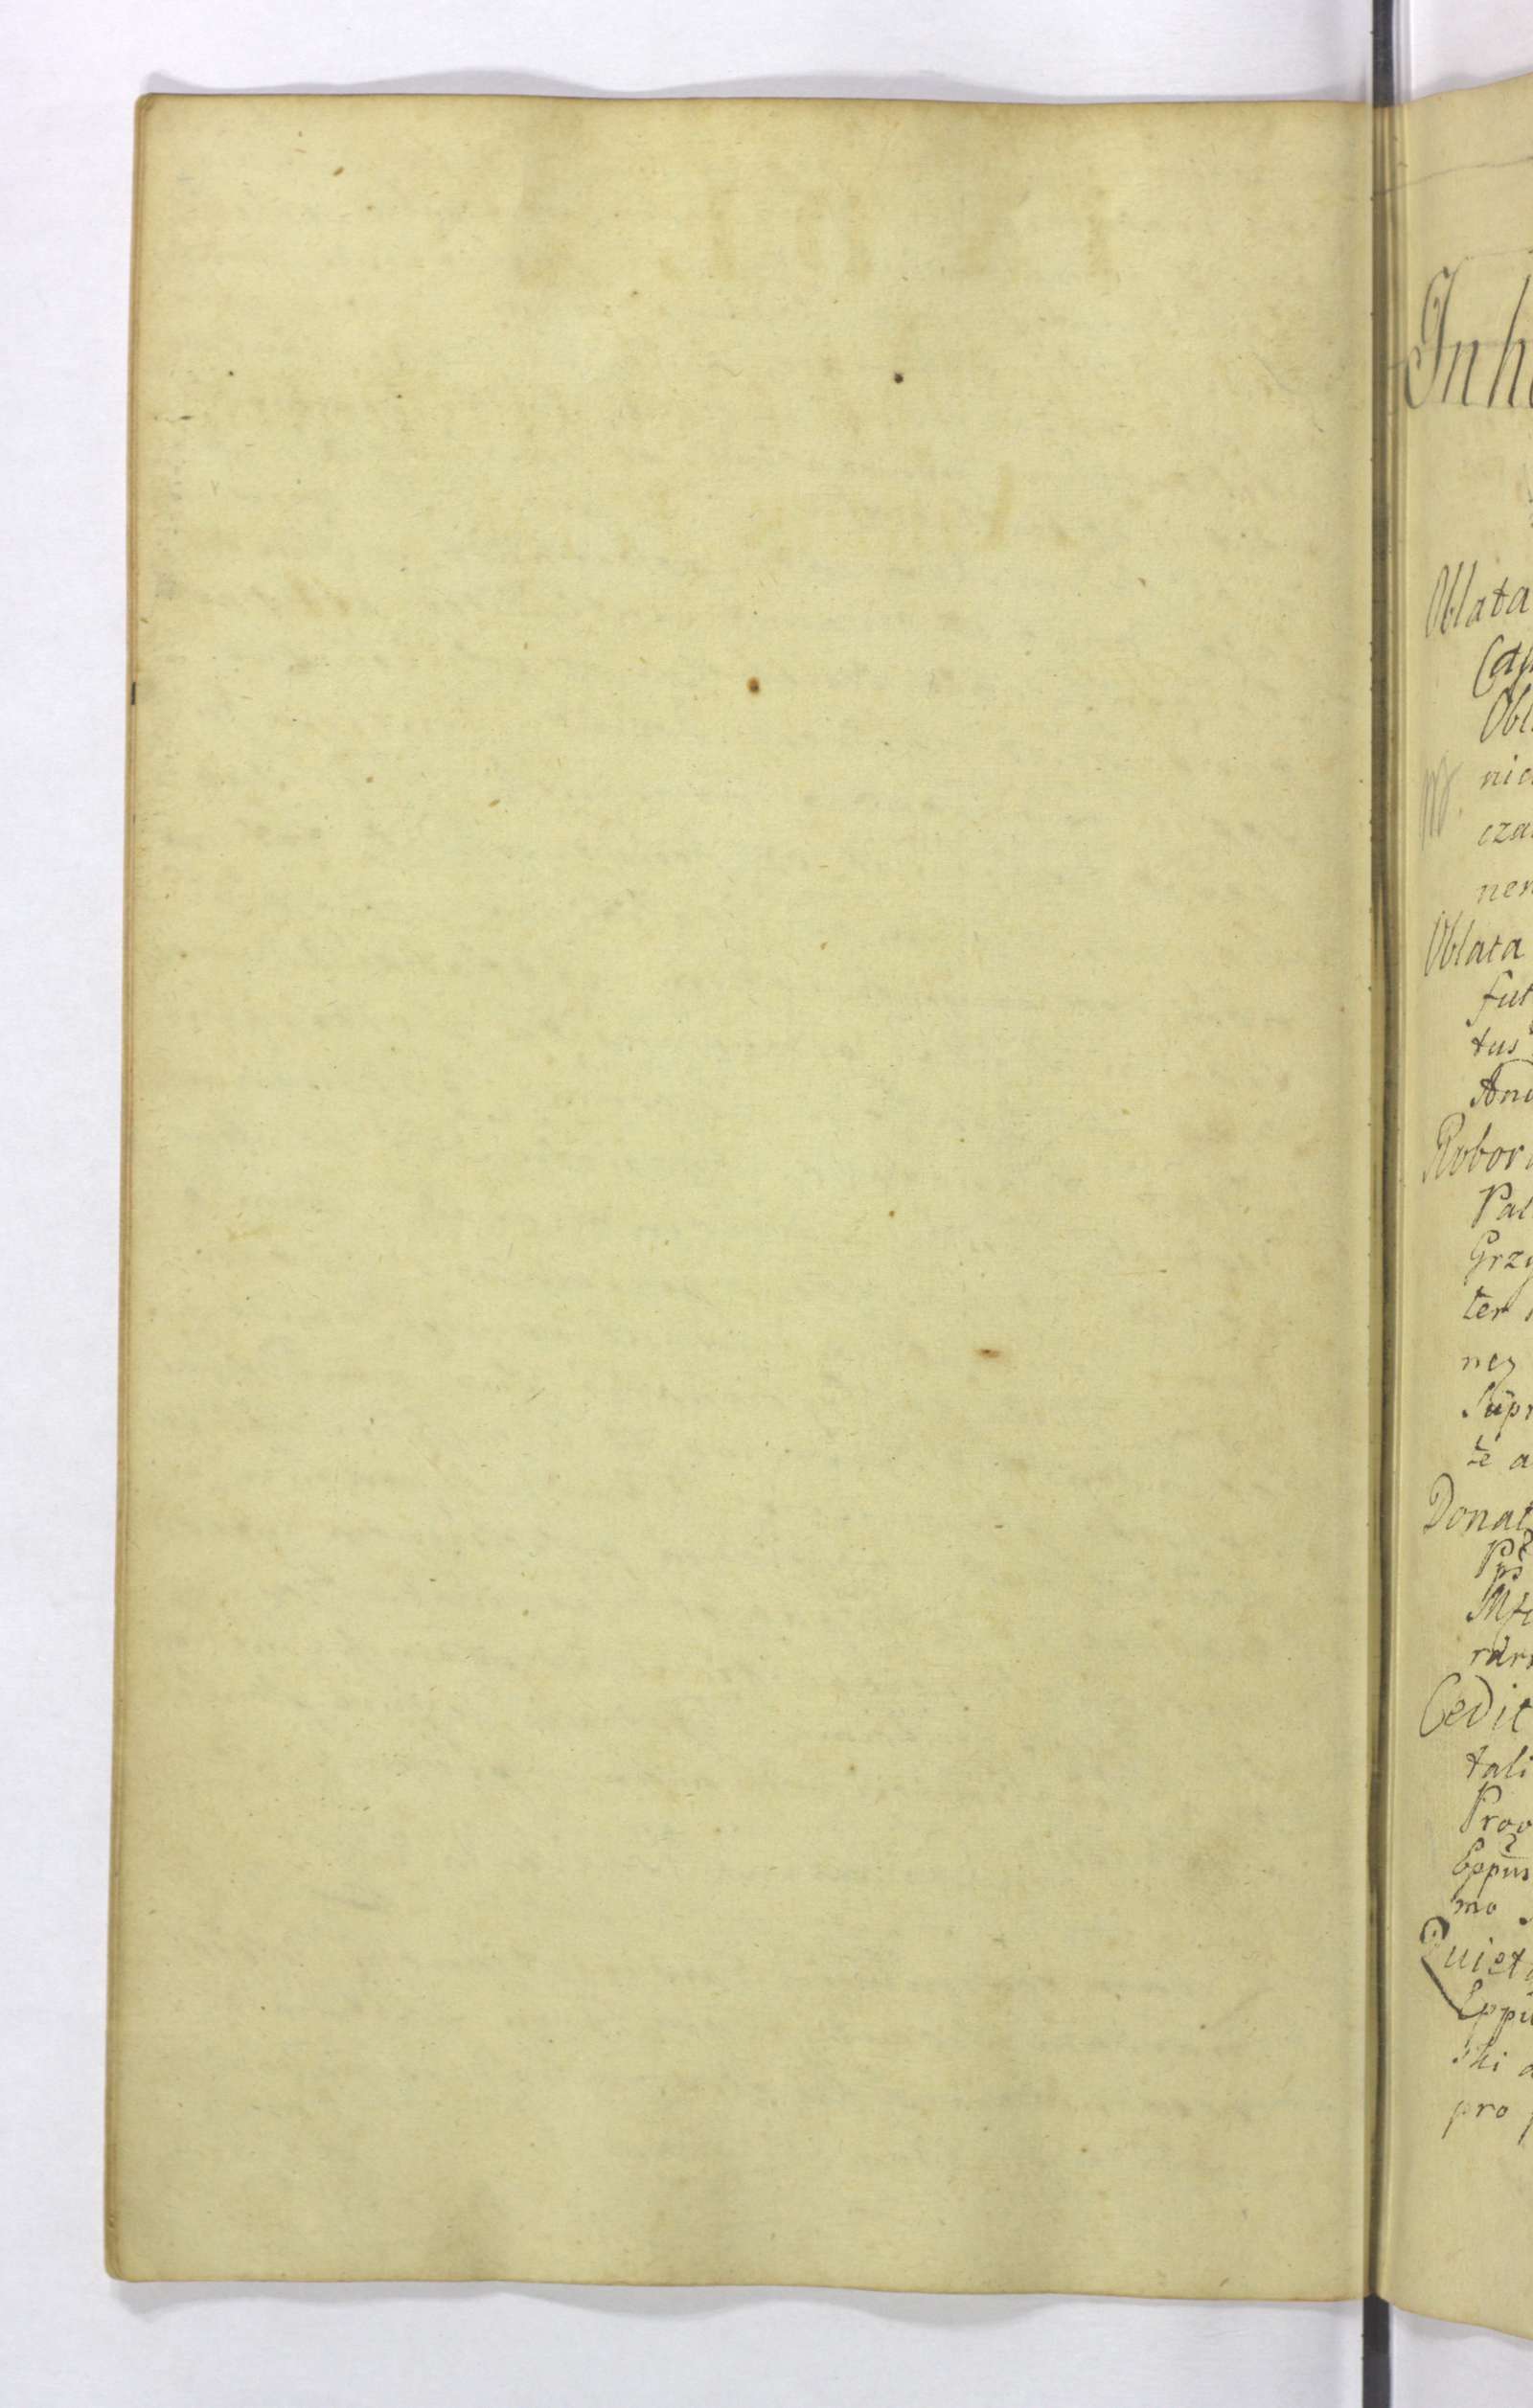 Inh
Oblata
Obl
nic
cza
ner
Oblata
fut
tus
And
Robor
Pal
Grzy
ter
ney
Supr
te a
Donat
Mte
rar
Cedit
tali
Prov
Eppus
mo
Quiet
Eppu
ski a
pro p